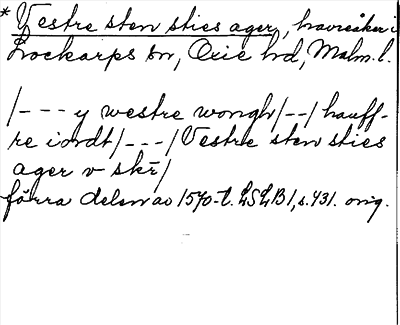 * Vestre sten sties ager, havreåker i
Lockarps sn, Oxie hd, Malm. l.
/--- y westre wongh/--/ hauff-
re iordt/---/ Vestre sten sties
ager v skr̄/
förra delen av 1570-t. LSLB1, s. 431. orig.